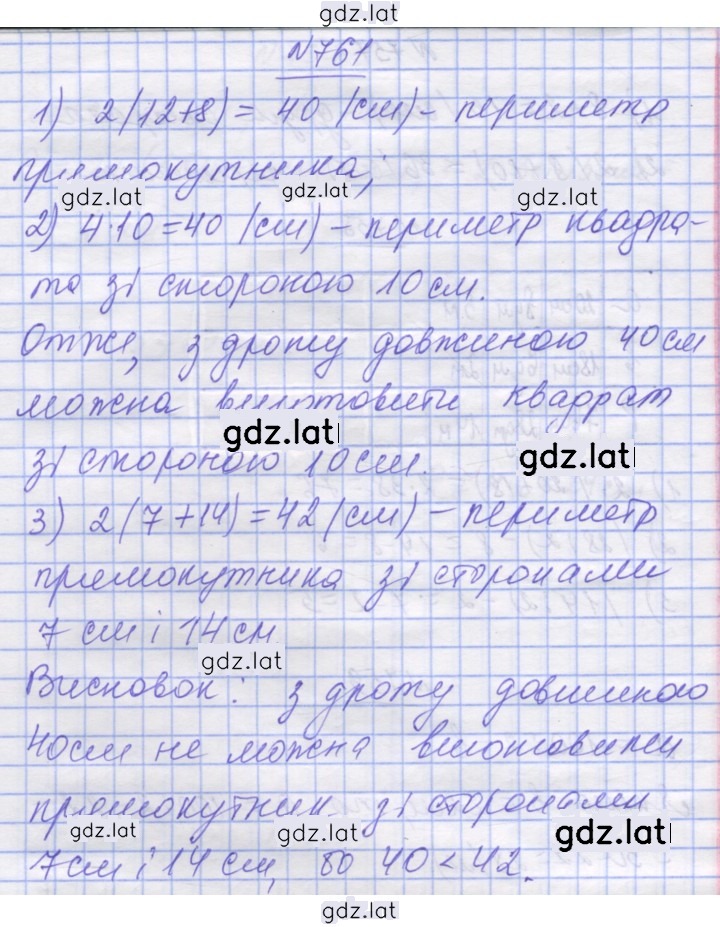 gdz.lat
№761
1) 2(12+8) = 40 (см) – периметр
прямокутника;
gdz.lat gdz.lat gdz.lat
2) 4·10 = 40 (см) – периметр квадра-
та зі стороною 10 см.
Отже, з дроту довжиною 40 см
можна виготовити квадрат
gdz.lat gdz.lat
зі стороною 10 см.
3) 2(7+14) = 42 (см) – периметр
прямокутника зі сторонами
7 см і 14 см
gdz.lat
Висновок: з дроту довжиною
40 см не можна виготовити
прямокутник зі сторонами
gdz.lat gdz.lat gdz.lat
7 см і 14 см, бо 40 < 42.
gdz.lat